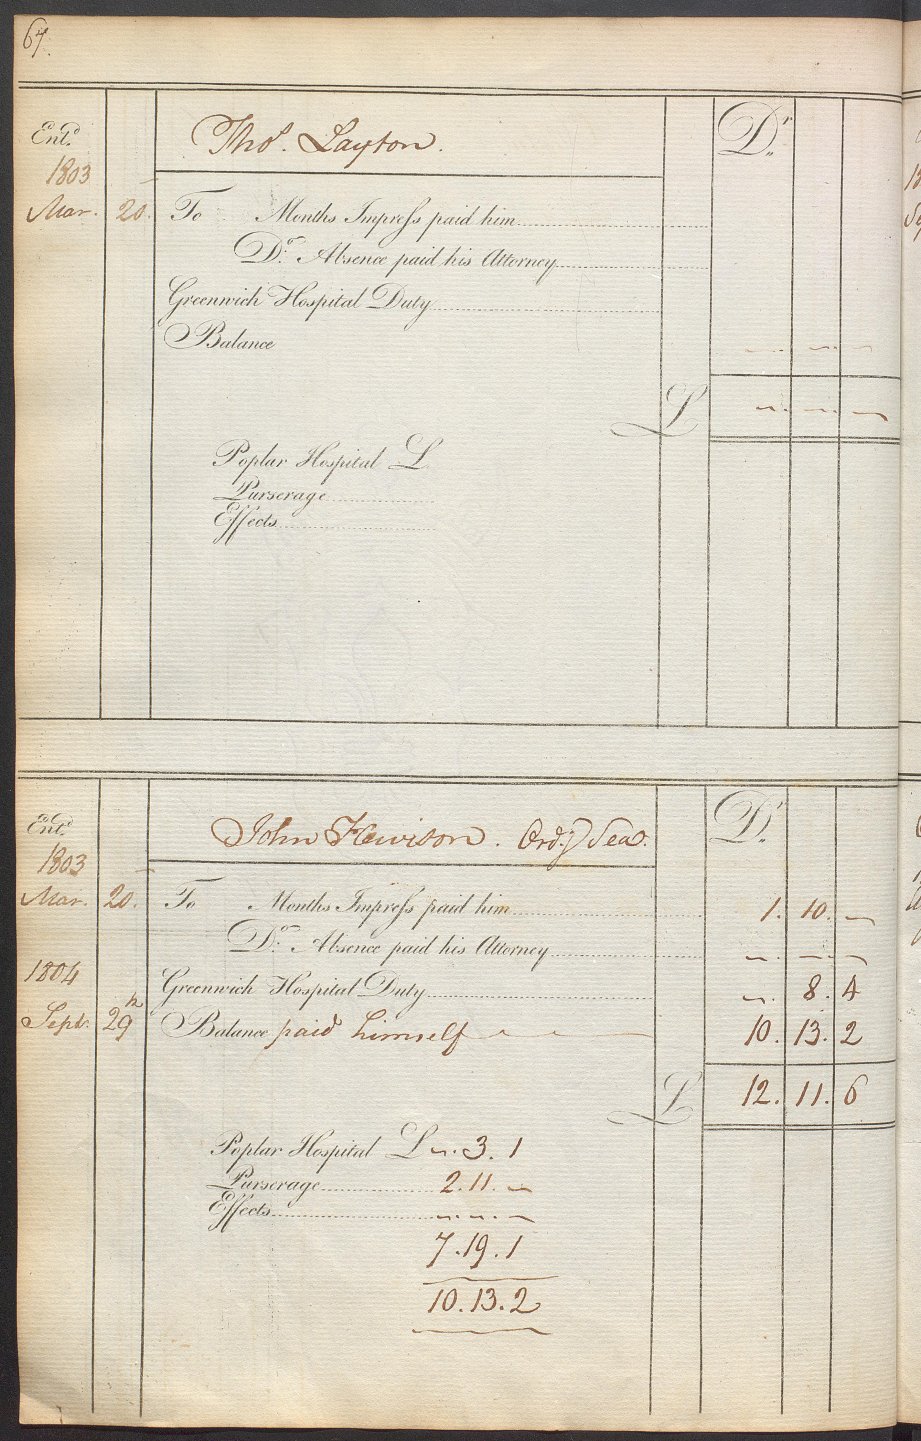 67.
Entd. Thos. Layton. Dr.
1803
Mar. 20. To Months Impress paid him
Do. Absence paid his Attorney
Greenwich Hospital Duty
Balance
£
Poplar Hospital £
Purserage
Effects
Entd. John Hewison. Ordy. Sea. Dr.
1803
Mar. 20. To Months Impress paid him 1. 10. —
Do. Absence paid his Attorney —. —. —
1804 Greenwich Hospital Duty —. 8. 4
Sept. 29th Balance paid himself 10. 13. 2
£ 12. 11. 6
Poplar Hospital £ —. 3. 1
Purserage 2. 11. —
Effects —. —. —
7. 19. 1
10. 13. 2